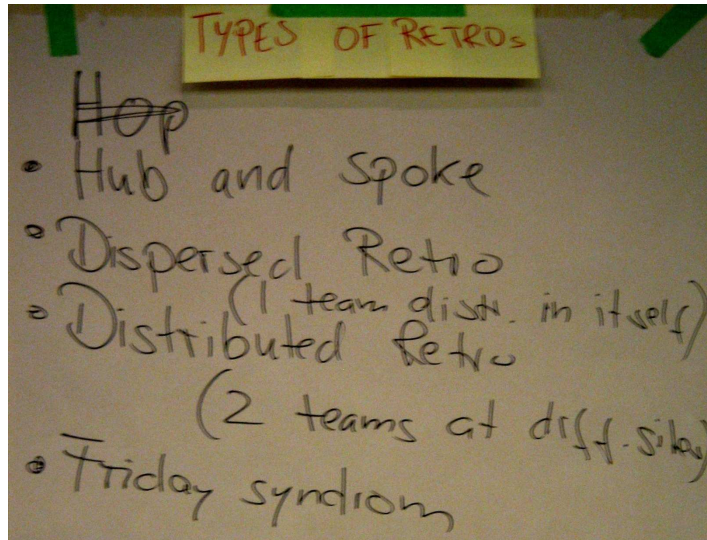 TYPES OF RETROs
Hop
• Hub and spoke
• Dispersed Retro
(1 team distr. in itself)
• Distributed Retro
(2 teams at diff. sites)
• Friday syndrom